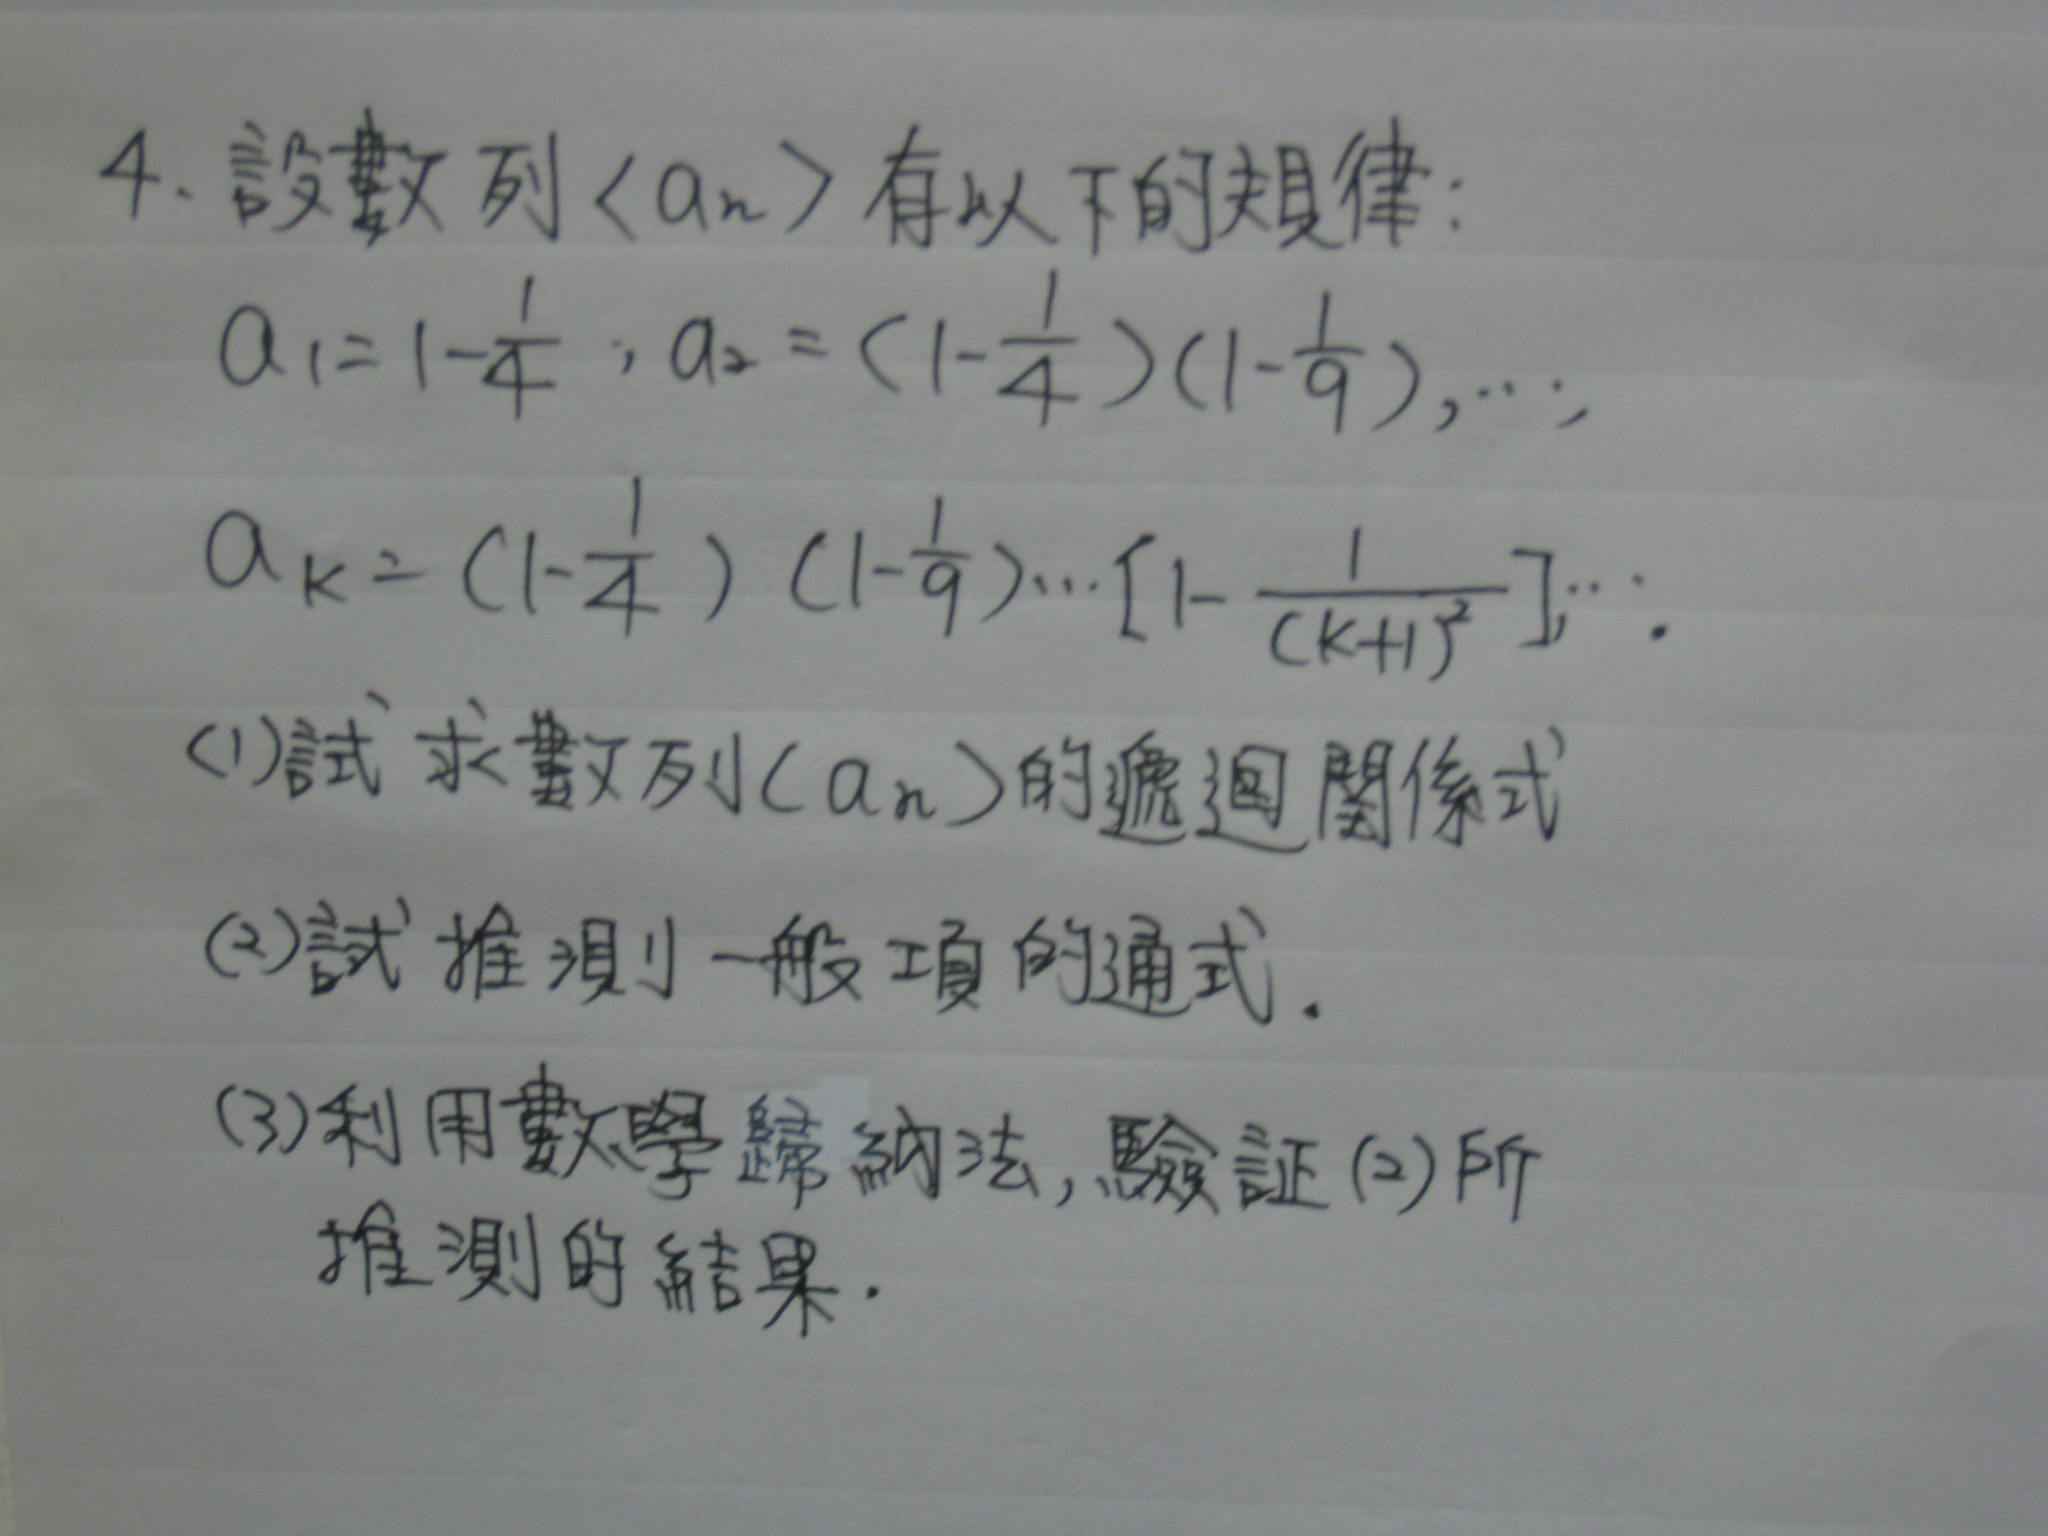 4. 設數列〈aₙ〉有以下的規律:
a₁=1-1/4,a₂=(1-1/4)(1-1/9),…,
aₖ=(1-1/4)(1-1/9)…[1-1/(k+1)²],….
(1)試求數列〈aₙ〉的遞迴關係式
(2)試推測一般項的通式.
(3)利用數學歸納法,驗証(2)所
推測的結果.